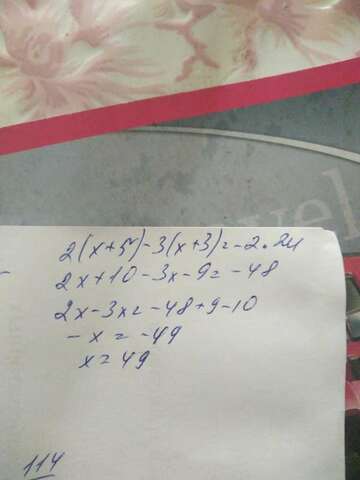 vel
2(x+5)-3(x+3)=-2·24
2x+10-3x-9=-48
2x-3x=-48+9-10
-x = -49
x=49
114